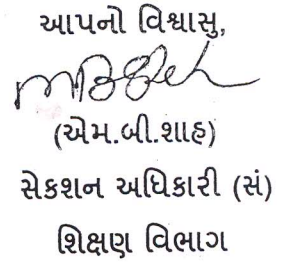 આપનો વિશ્વાસુ,
(એમ.બી.શાહ)
સેકશન અધિકારી (સં)
શિક્ષણ વિભાગ